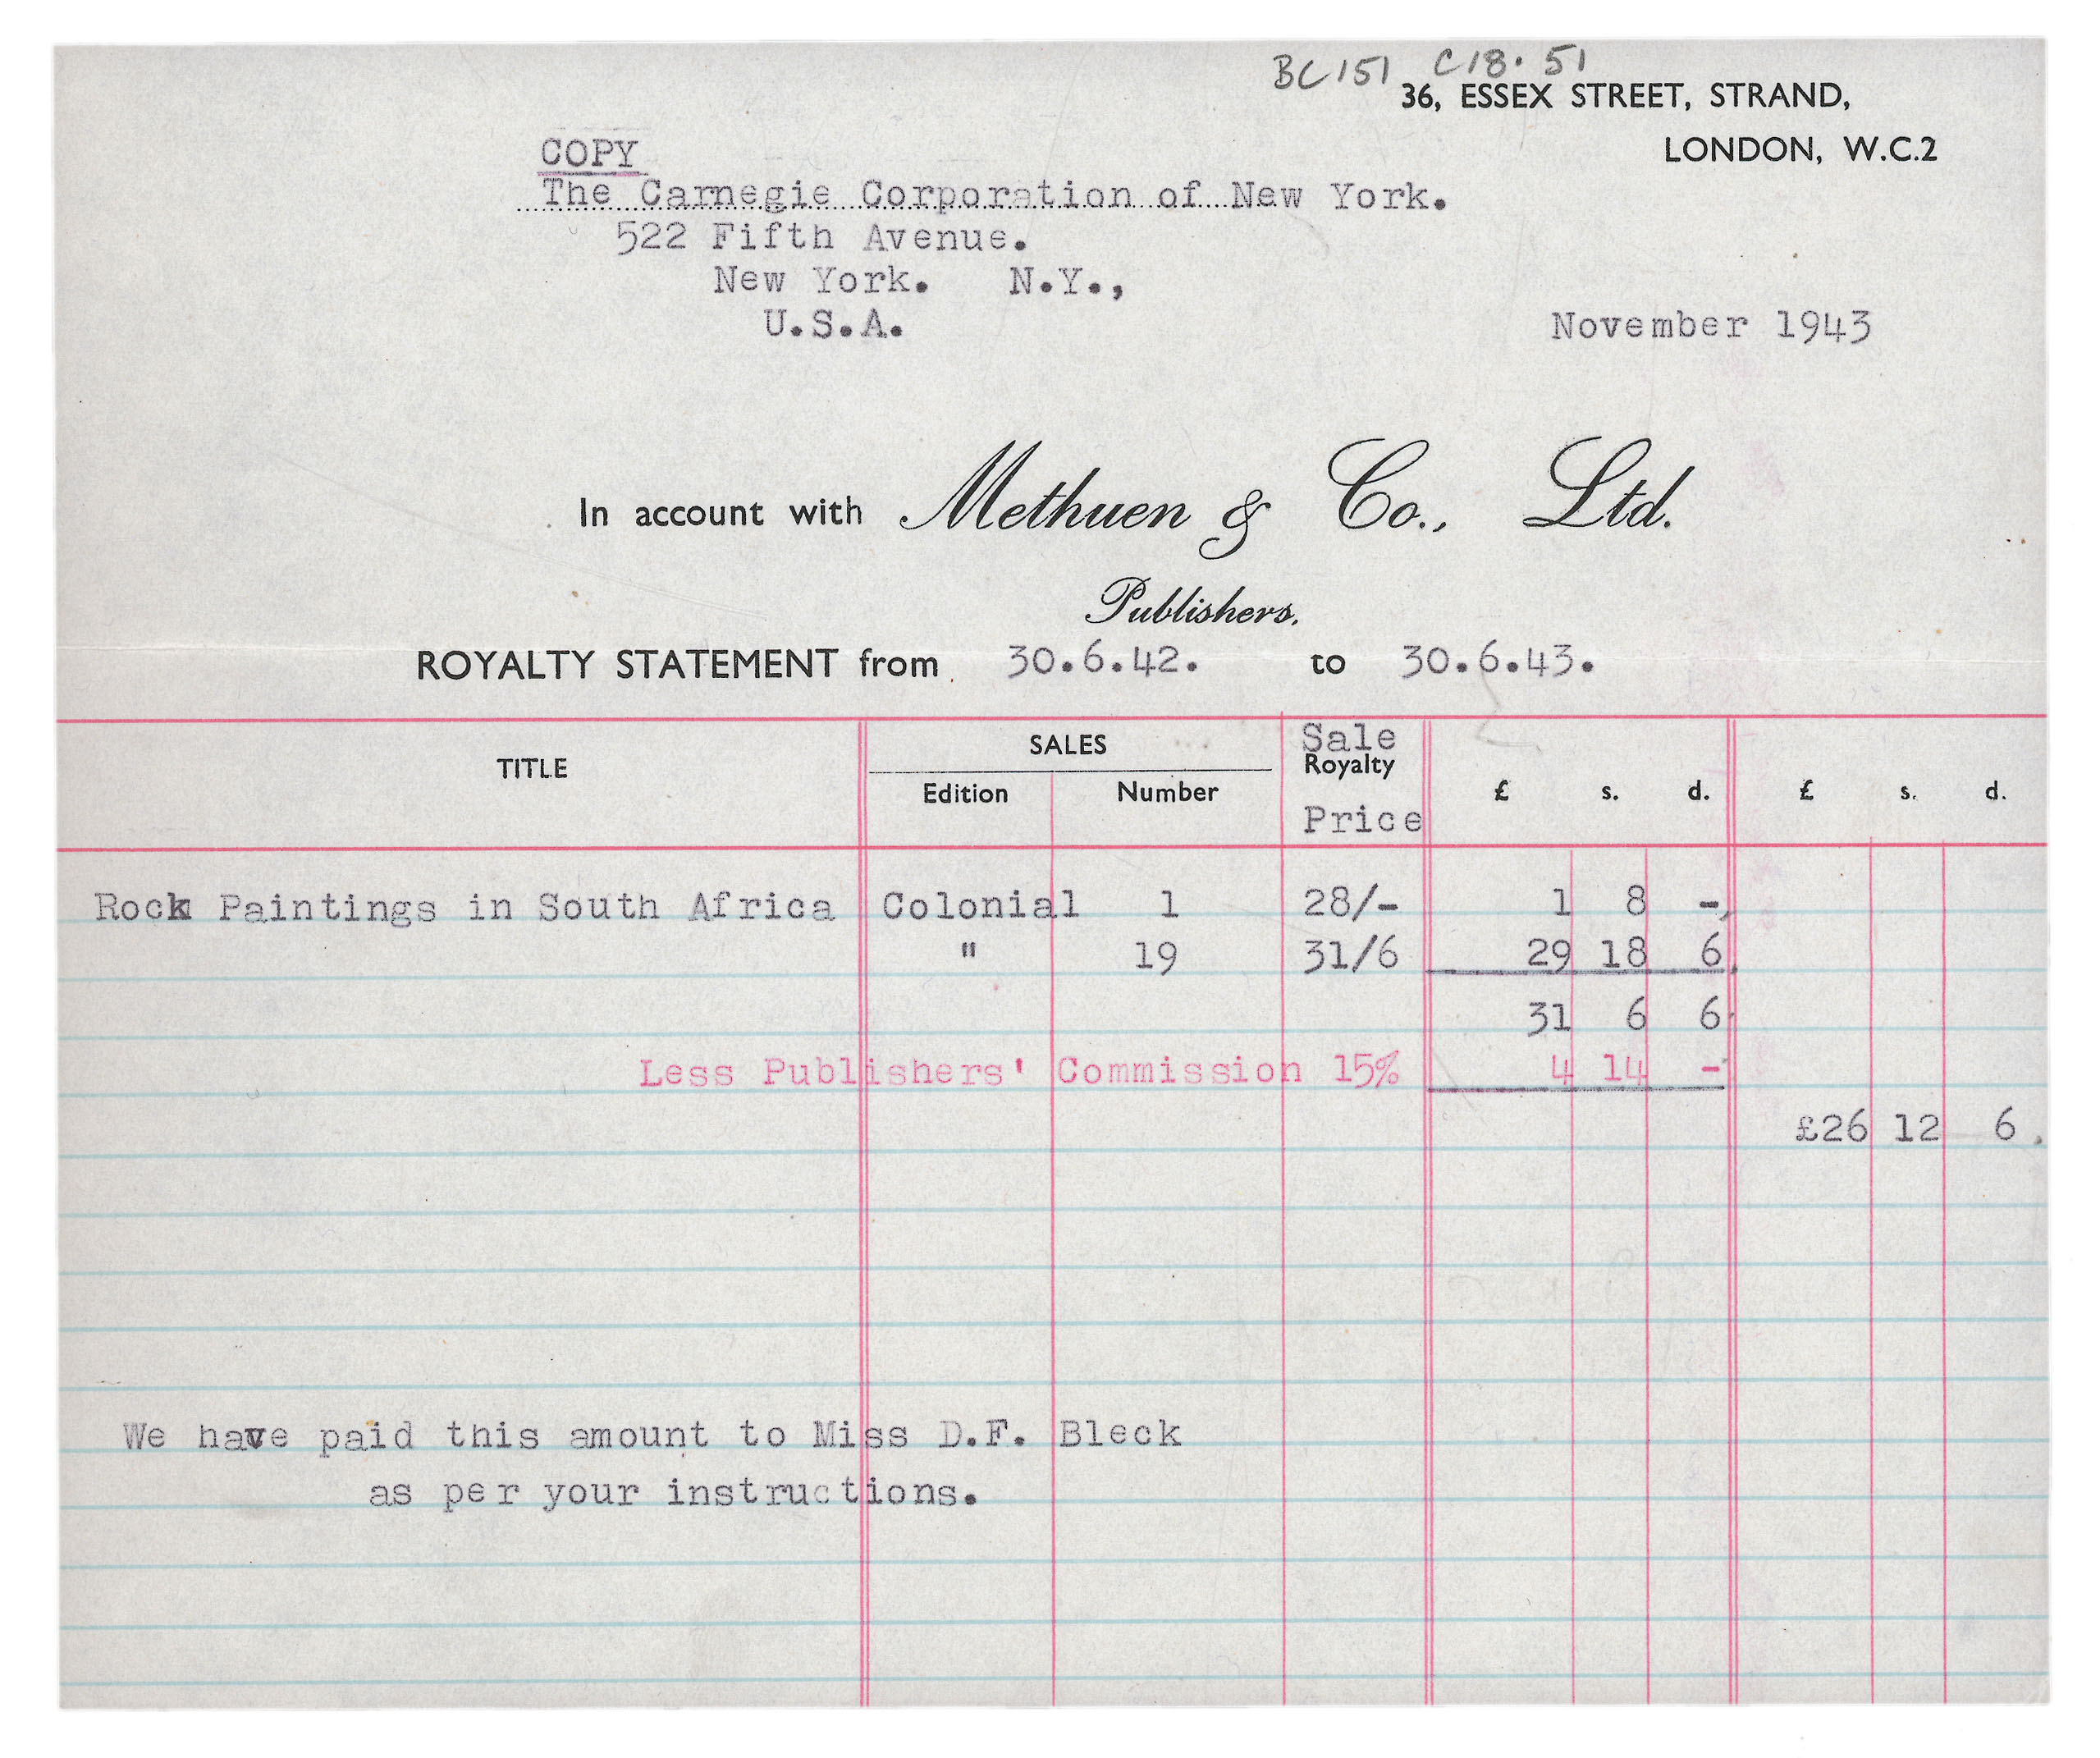 BC151 C18.51
36, ESSEX STREET, STRAND,
LONDON, W.C.2
COPY
The Carnegie Corporation of New York.
522 Fifth Avenue.
New York. N.Y.,
U.S.A.
November 1943
In account with Methuen & Co., Ltd.
Publishers.
ROYALTY STATEMENT from 30.6.42. to 30.6.43.
TITLE SALES Edition Number Sale Royalty Price £ s. d. £ s. d.
Rock Paintings in South Africa Colonial 1 28/- 1 8 -
" 19 31/6 29 18 6
31 6 6
Less Publishers' Commission 15% 4 14 -
£26 12 6
We have paid this amount to Miss D.F. Bleck
as per your instructions.